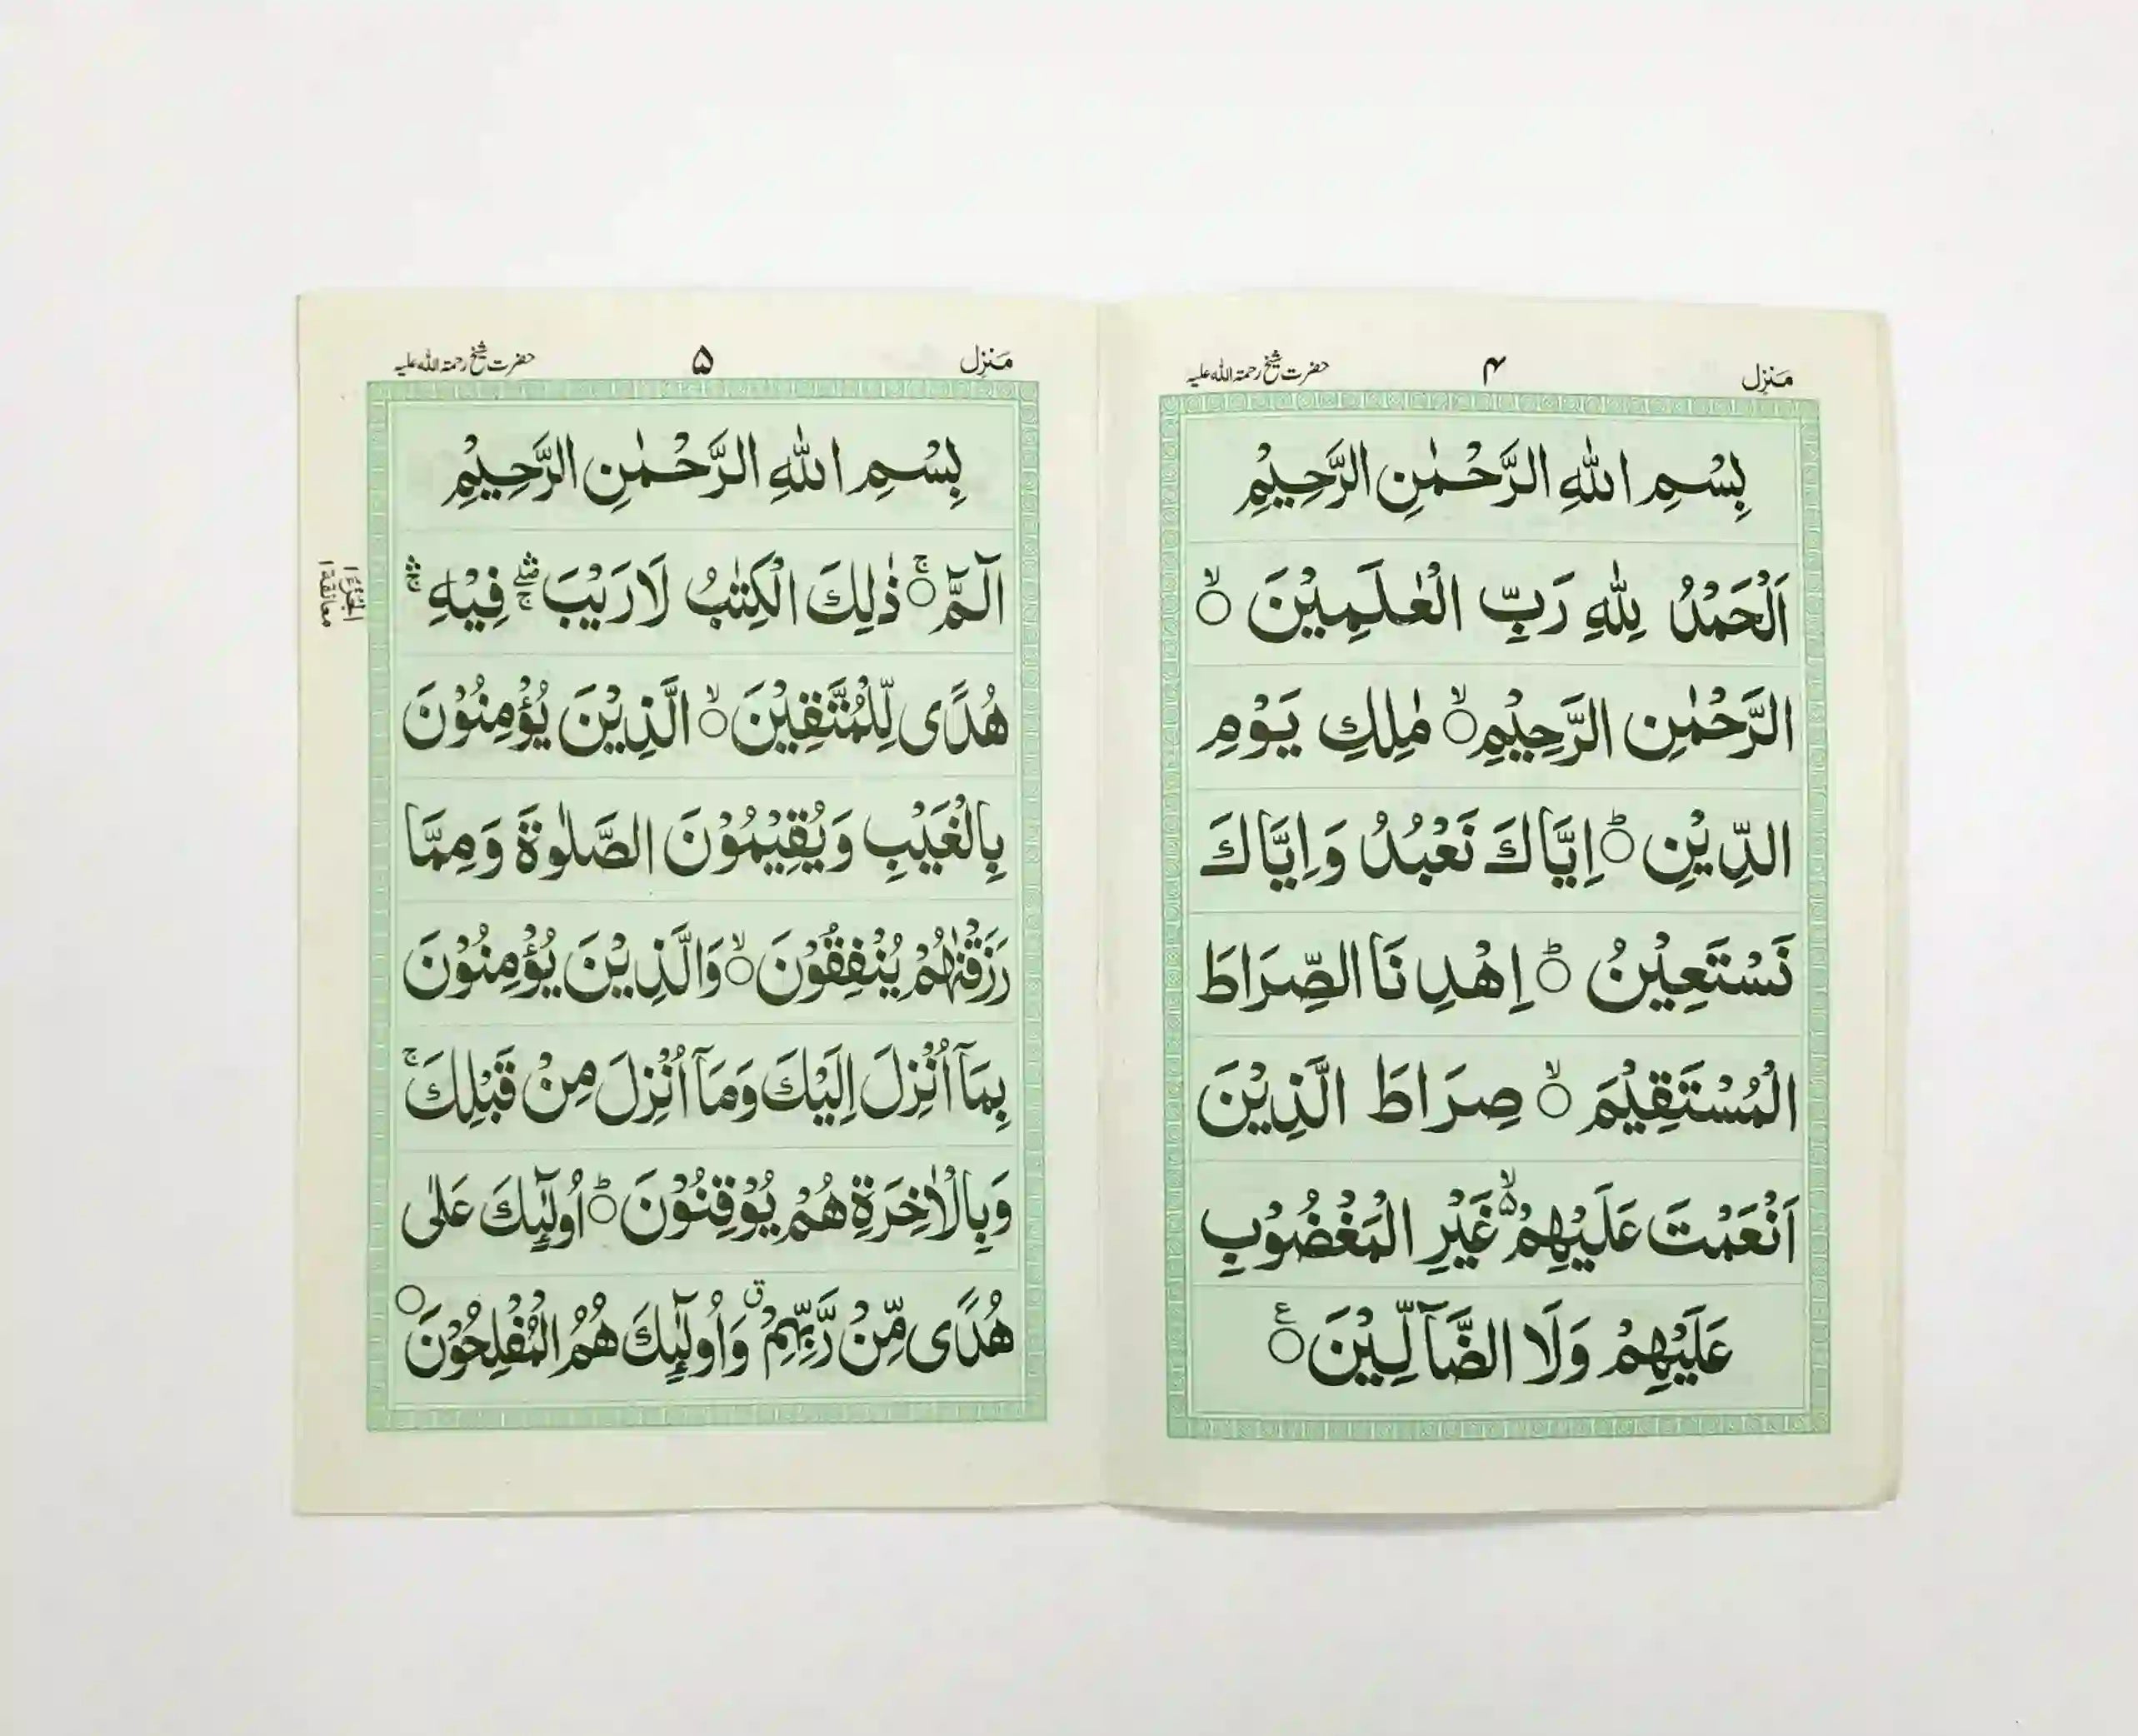 مَنزِل ۴ حضرت شیخ رحمۃ اللہ علیہ
بِسْمِ اللّٰهِ الرَّحْمٰنِ الرَّحِيْمِ
اَلْحَمْدُ لِلّٰهِ رَبِّ الْعٰلَمِيْنَ ۙ○
الرَّحْمٰنِ الرَّحِيْمِ ۙ○ مٰلِكِ يَوْمِ
الدِّيْنِ ؕ○ اِيَّاكَ نَعْبُدُ وَاِيَّاكَ
نَسْتَعِيْنُ ؕ○ اِهْدِنَا الصِّرَاطَ
الْمُسْتَقِيْمَ ۙ○ صِرَاطَ الَّذِيْنَ
اَنْعَمْتَ عَلَيْهِمْ ۙ۵ غَيْرِ الْمَغْضُوْبِ
عَلَيْهِمْ وَلَا الضَّآلِّيْنَ ○ع
مَنزِل ۵ حضرت شیخ رحمۃ اللہ علیہ
بِسْمِ اللّٰهِ الرَّحْمٰنِ الرَّحِيْمِ
الٓمّٓ ○ۚ ذٰلِكَ الْكِتٰبُ لَا رَيْبَ ۛۖۚ فِيْهِ ۛۚ
هُدًى لِّلْمُتَّقِيْنَ ۙ○ الَّذِيْنَ يُؤْمِنُوْنَ
بِالْغَيْبِ وَيُقِيْمُوْنَ الصَّلٰوةَ وَمِمَّا
رَزَقْنٰهُمْ يُنْفِقُوْنَ ۙ○ وَالَّذِيْنَ يُؤْمِنُوْنَ
بِمَآ اُنْزِلَ اِلَيْكَ وَمَآ اُنْزِلَ مِنْ قَبْلِكَ ۚ
وَبِالْاٰخِرَةِ هُمْ يُوْقِنُوْنَ ؕ○ اُولٰٓئِكَ عَلٰى
هُدًى مِّنْ رَّبِّهِمْ ق وَاُولٰٓئِكَ هُمُ الْمُفْلِحُوْنَ ○
الجزء ۱
معانقة ۱